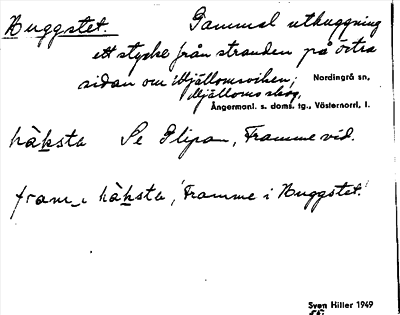 Huggstet. Gammal uthuggning
ett stycke från stranden på östra
sidan om Mjällomsviken,
Mjälloms skog.
Nordingrå sn,
Ångermanl. s. doms. tg., Västernorrl. l.
hàksta Se Slipan, Framme vid.
fram_i hàksta, 'Framme i Huggstet.'
Sven Hiller 1949